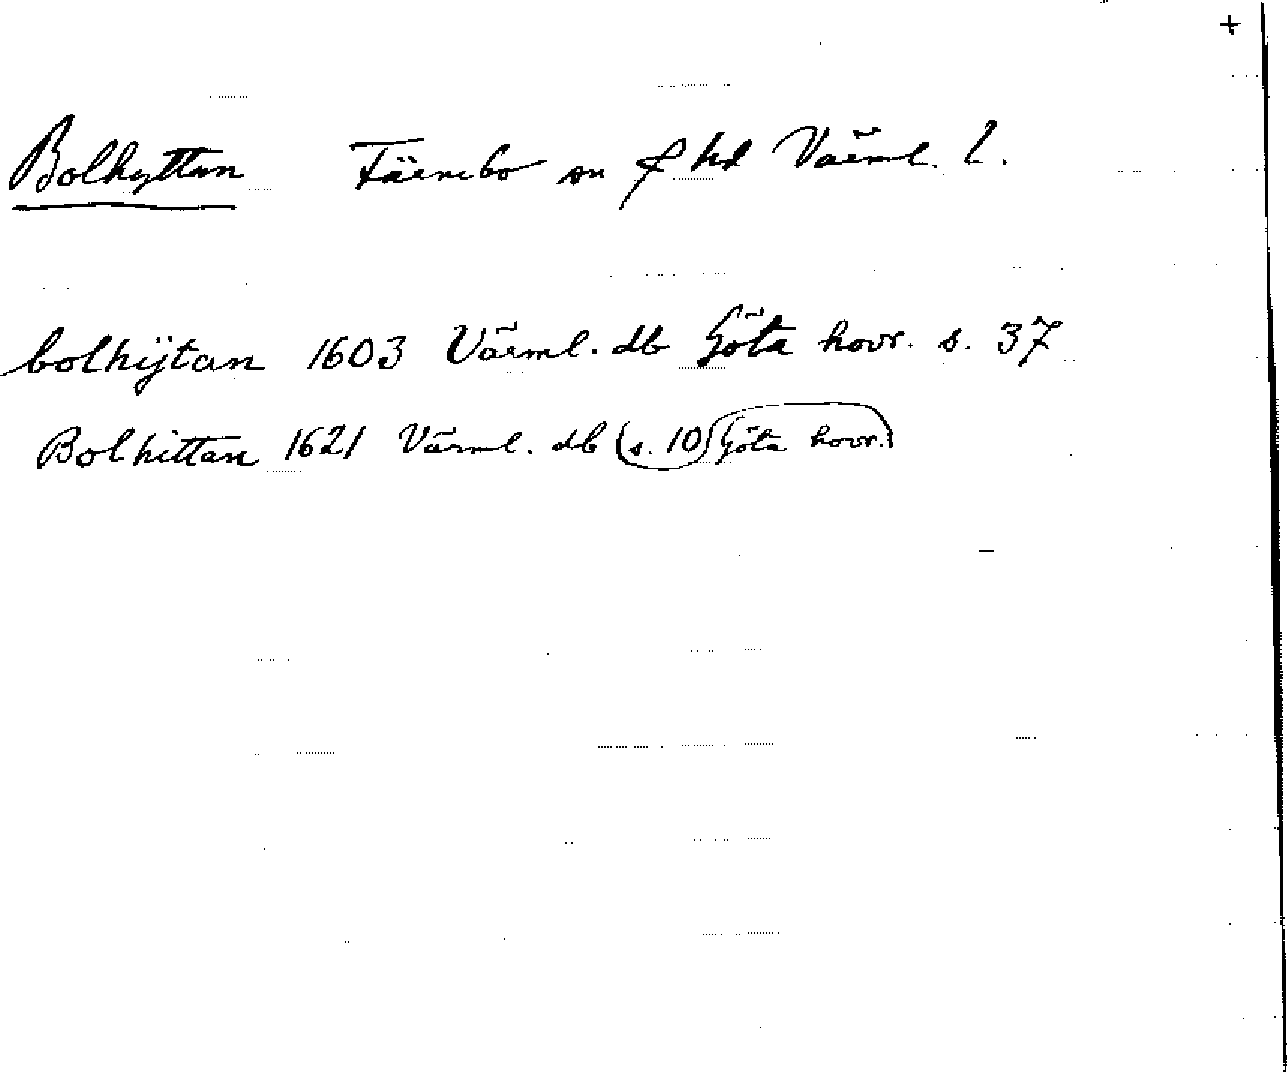 +
Bolhyttan Färnebo sn f hd Värml. l.
bolhÿtan 1603 Värml. db Göta hovr. s. 37
Bolhittan 1621 Värml. db s. 10 Göta hovr.